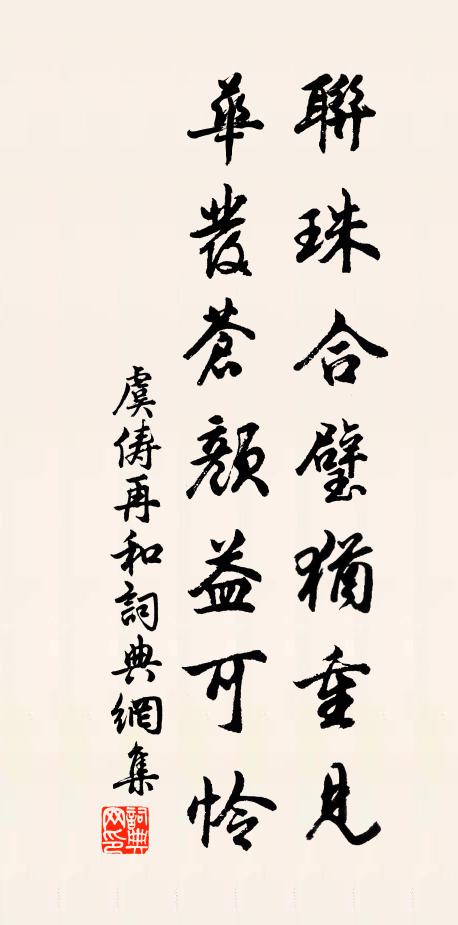 聯珠合璧猶重見
華發蒼顏益可憐
虞儔再和詞典網集
詞典網印